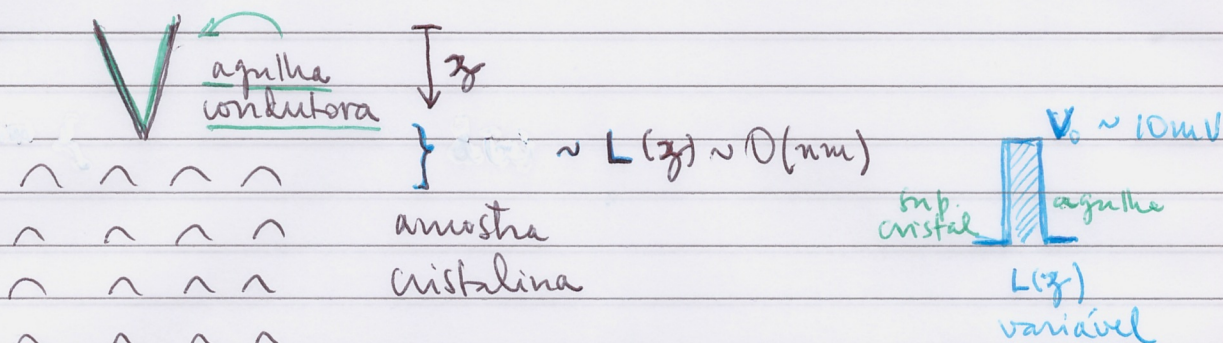 agulha
condutora
z
~ L(z) ~ O(nm)
amostra
cristalina
V₀ ~ 10mV
sup.
cristal
agulha
L(z)
variável